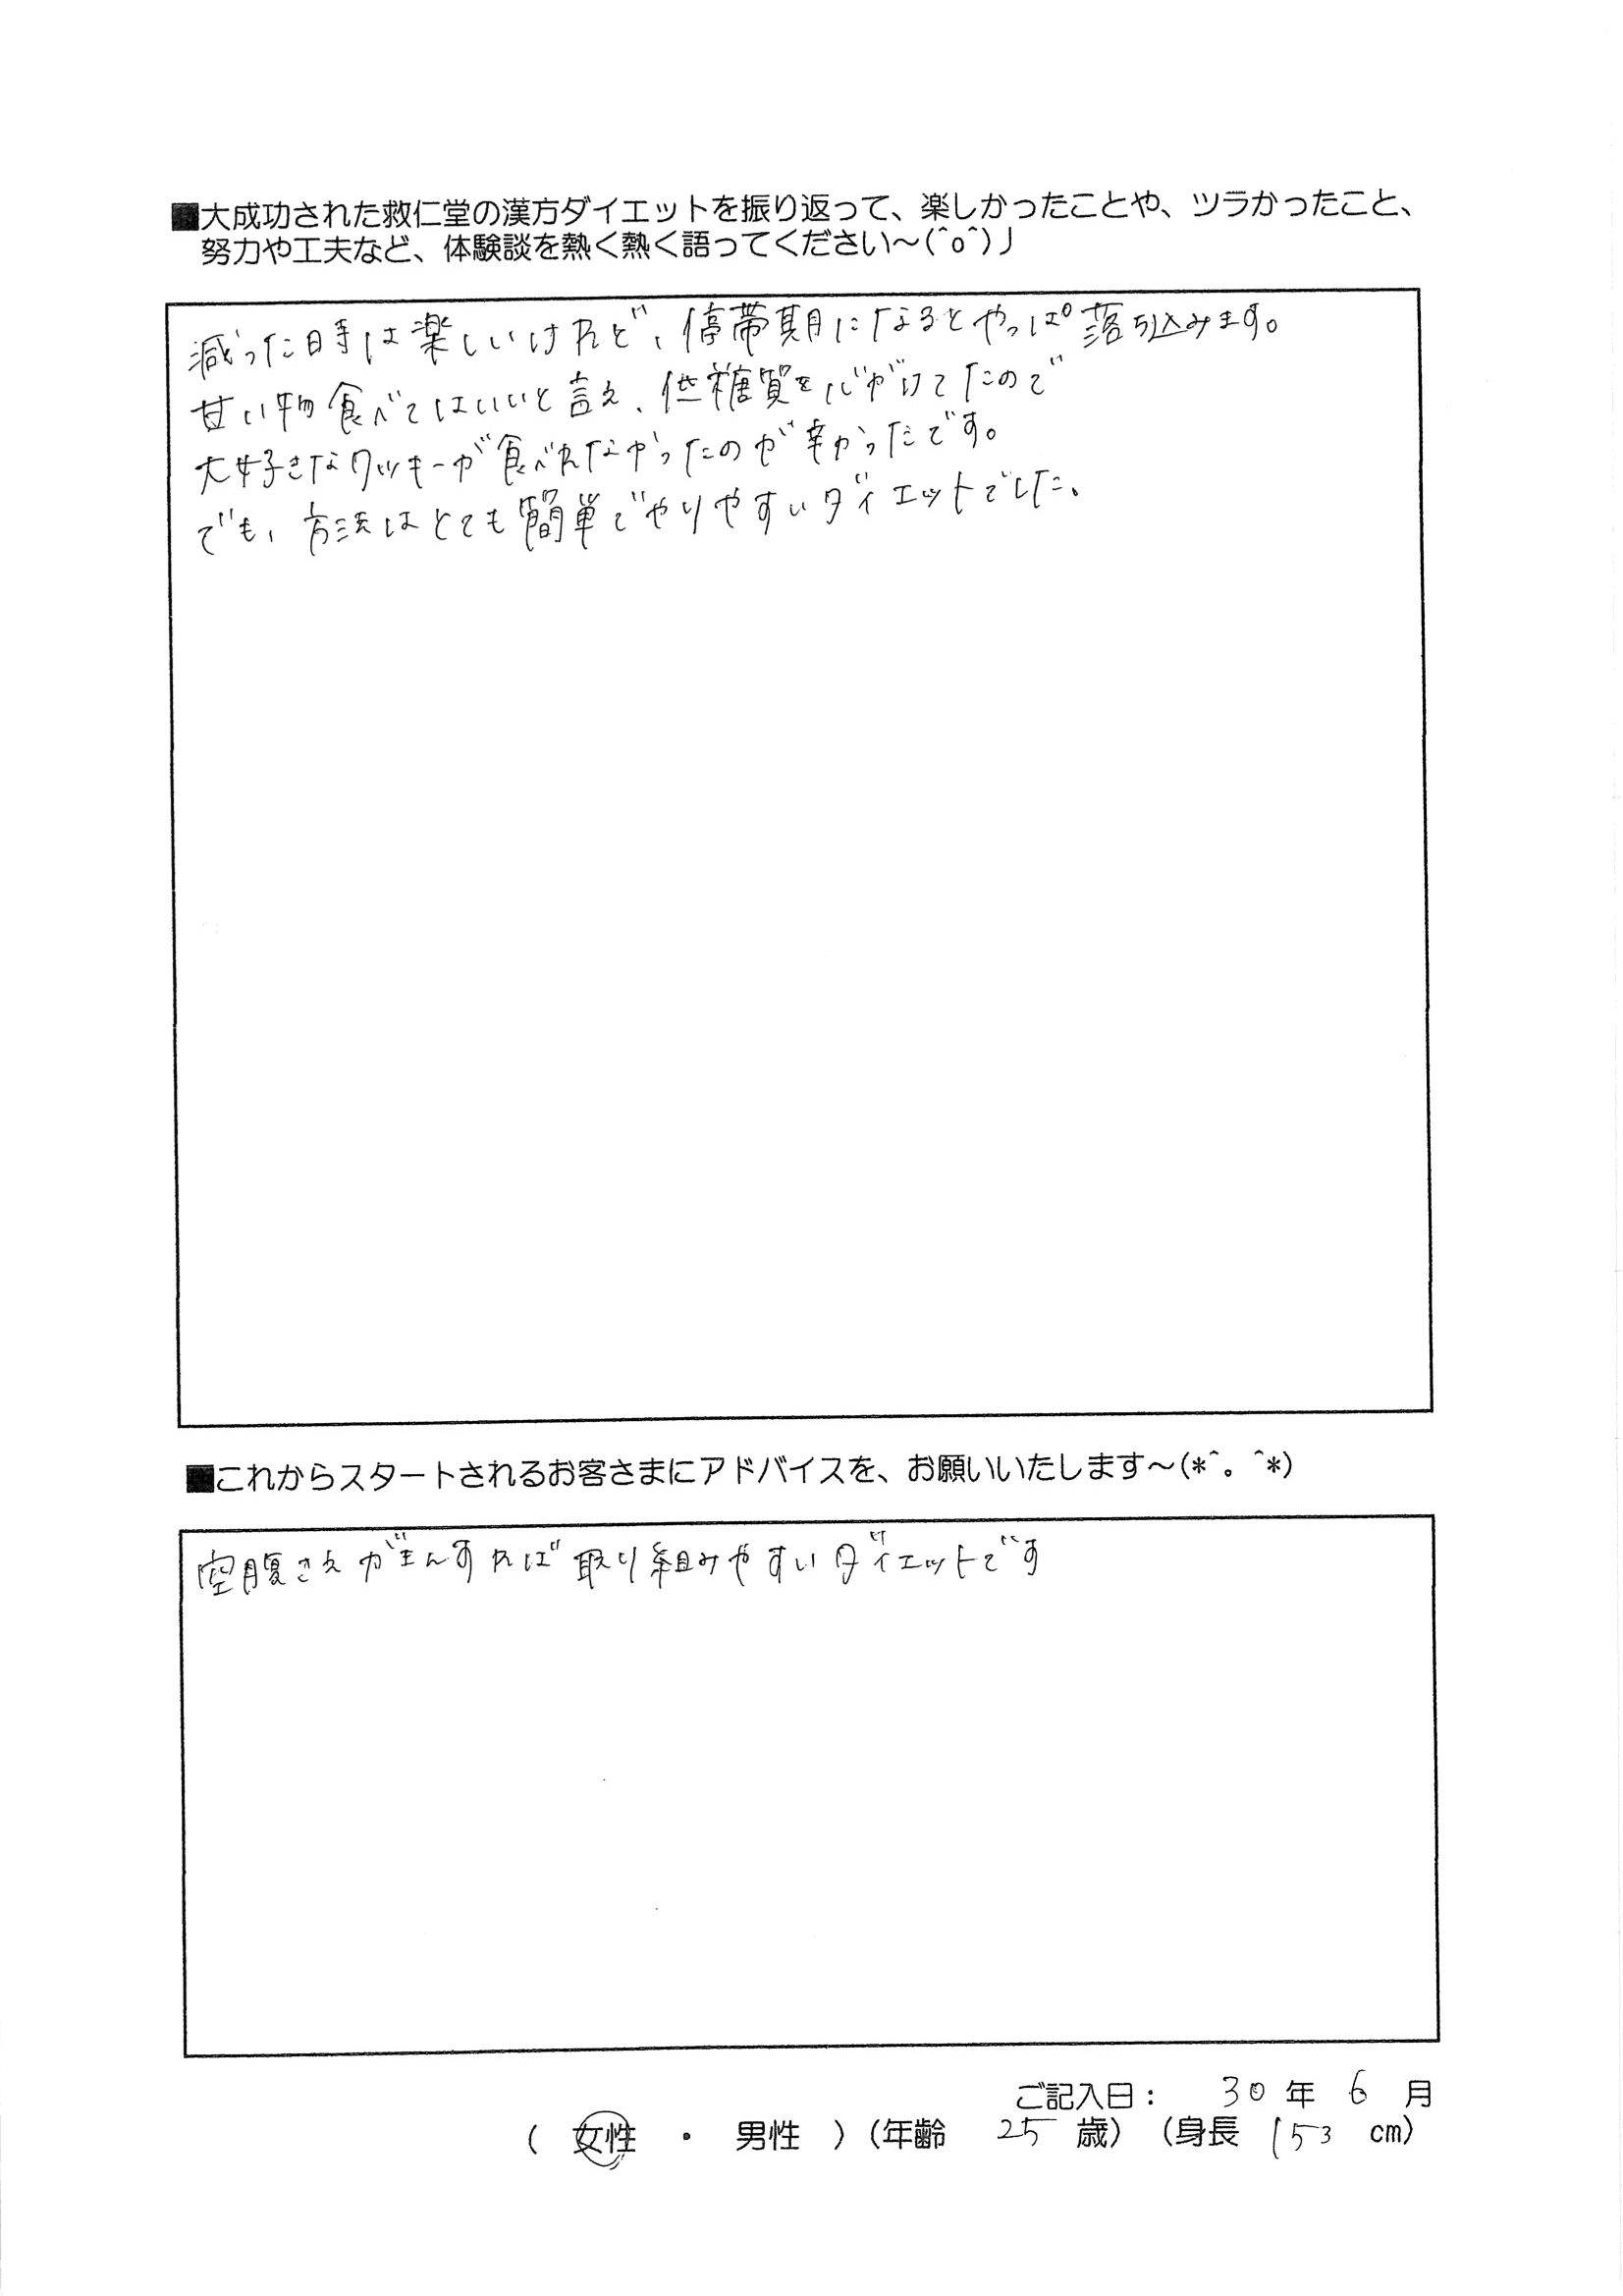 ■大成功された救仁堂の漢方ダイエットを振り返って、楽しかったことや、ツラかったこと、
努力や工夫など、体験談を熱く熱く語ってください～(^o^)丿
減った時は楽しいけれど、停帯期になるとやっぱ落ち込みます。
甘い物食べてはいいと言え、低糖質を心がけてたので
大好きなクッキーが食べれなかったのが幸かったです。
でも、方法はとても簡単でやりやすいダイエットでした。
■これからスタートされるお客さまにアドバイスを、お願いいたします～(*^。^*)
空腹さえがまんすれば取り組みやすいダイエットです
ご記入日： 30年 6月
( 女性 ・ 男性 ) (年齢 25 歳) (身長 153 cm)